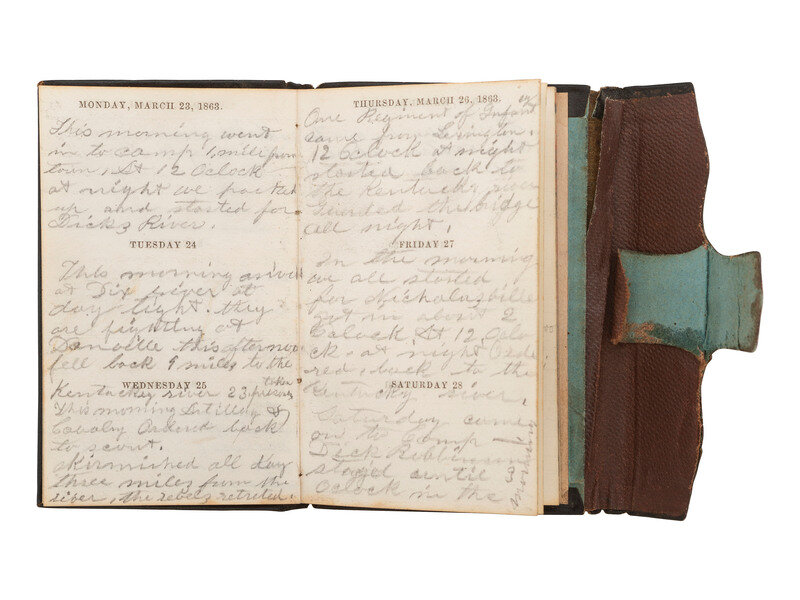 MONDAY, MARCH 23, 1863.
This morning went
in to camp 1 mile from
town, At 12 Oclock
at night we packed
up and started for
Dicks River.
TUESDAY 24
This morning arived
at Dix river at
day light. they
are fighting at
Danville this afternoon
fell back 9 miles to the
WEDNESDAY 25
Kentuckey river 23 taken prisoners
This morning Artillery &
Cavalry Ordered back
to scout.
skirmished all day
three miles from the
river, the rebels retreted.
THURSDAY, MARCH 26, 1863.
One Regiment of Infantry
came from Lexington.
12 Oclock at night
started back to
the Kentucky river
Guarded the bridge
all night.
FRIDAY 27
In the morning
we all started
for Nicholasville
got in about 2
Oclock At 12 Oclo-
ck, at night Orde-
red, back to the
Kentucky river,
SATURDAY 28
Saturday came
on to Camp
Dick Robbinson
staged until 3
Oclock in the
morning